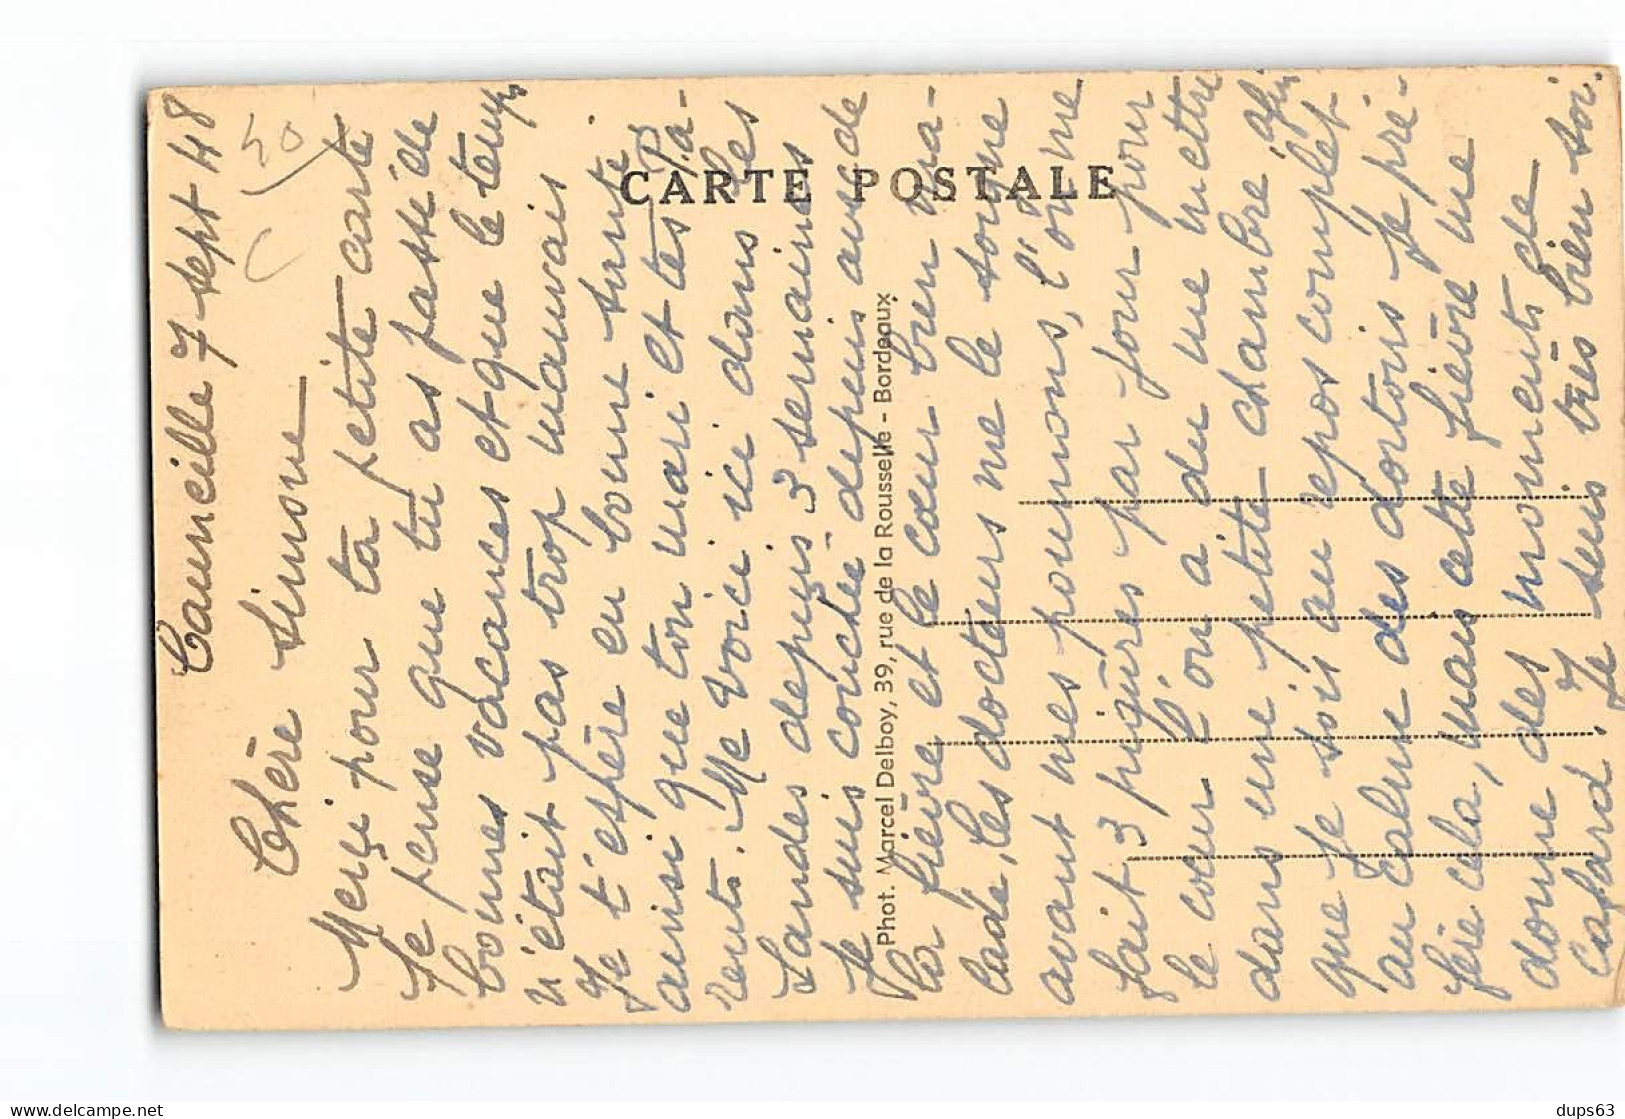 Cauneille 7 sept 48
50
Chère Simone
Merçi pour ta petite carte
Je pense que tu as passé de
bonnes vacances et que le temps
n'était pas trop mauvais
Je t'espère en bonne santé
ainsi que ton mari et tes Pa-
rents. Me voici ici dans les
Landes depuis 3 semaines
Je suis couchée depuis avec de
la fièvre et le cœur bien ma-
lade, les docteurs ne le soigne
avant mes poumons, l'on me
fait 3 piqûres par jour pour
le cœur l'on a du me mettre
dans une petite chambre afin
que je sois au repos complet
au calme des dortoirs je pré-
fère cela, mais cette fièvre me
donne des moments de
cafard. Je suis très bien soi.
CARTE POSTALE
Phot. Marcel Delboy, 39, rue de la Rousselle - Bordeaux
delcampe.net
dups63